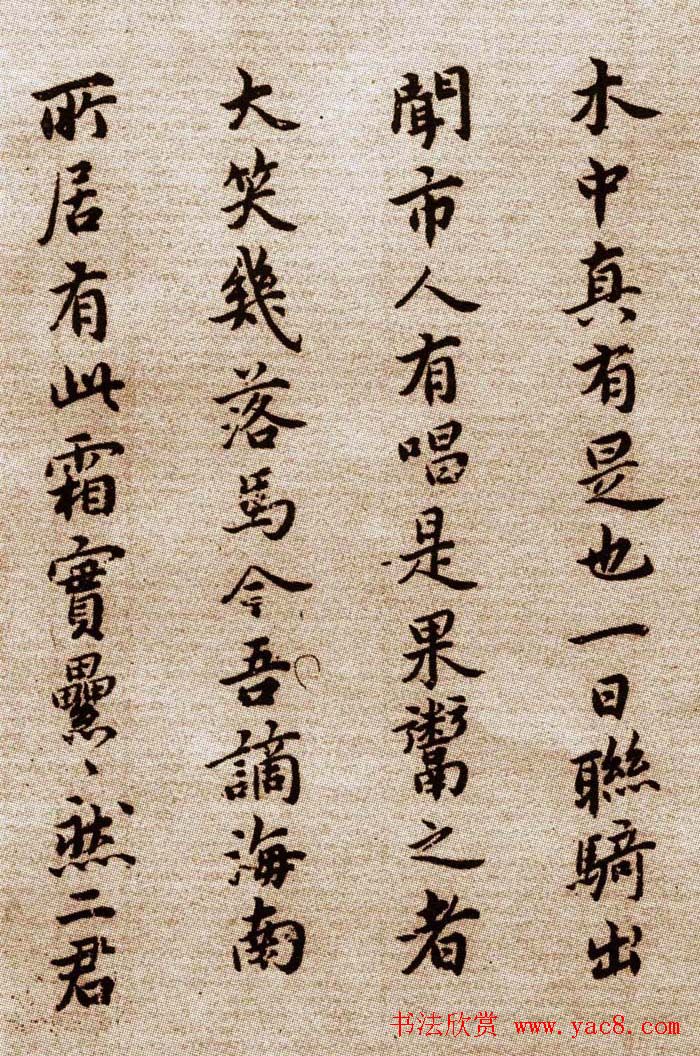 木中真有是也一日聯騎出
聞市人有唱是果鬻之者
大笑幾落馬今吾謫海南
所居有此霜實纍〻然二君
书法欣赏 www.yac8.com